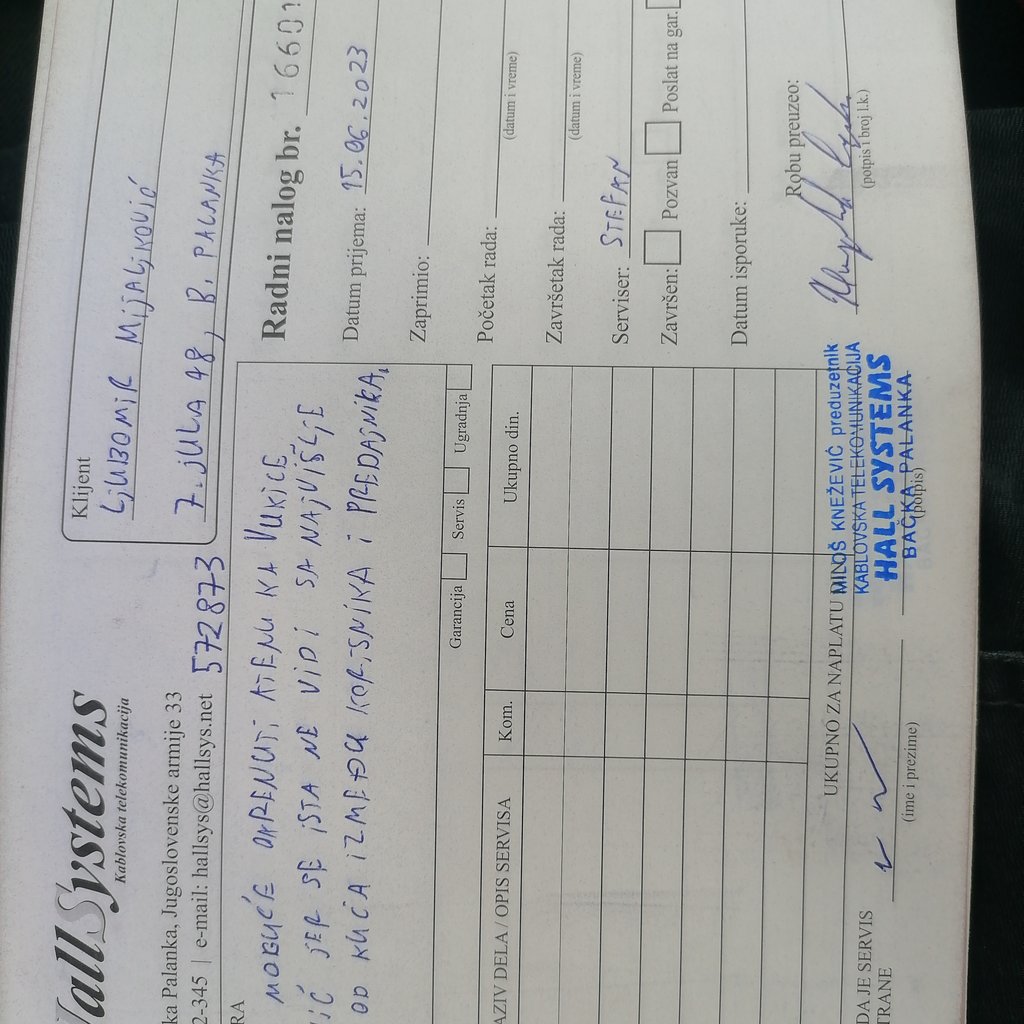 Hall Systems
Kablovska telekomunikacija
ka Palanka, Jugoslovenske armije 33
2-345 | e-mail: hallsys@hallsys.net
572873
Klijent
LJUBOMIR MIJALJKOVIĆ
7. JULA 48, B. PALANKA
RA
MOGUĆE OKRENUTI ATENU KA VUKICE
IĆ JER SE ISTA NE VIDI SA NAJVIŠLJE
OD KUĆA IZMEĐU KORISNIKA I PREDAJNIKA.
Garancija Servis Ugradnja
Radni nalog br. 16601
Datum prijema: 15.06.2023
Zaprimio:
Početak rada:
(datum i vreme)
Završetak rada:
(datum i vreme)
Serviser: STEFAN
Završen: Pozvan Poslat na gar.
Datum isporuke:
AZIV DELA / OPIS SERVISA Kom. Cena Ukupno din.
UKUPNO ZA NAPLATU
MILOŠ KNEŽEVIĆ preduzetnik
KABLOVSKA TELEKOMUNIKACIJA
HALL SYSTEMS
BAČKA PALANKA
(potpis)
Robu preuzeo:
(potpis i broj l.k.)
DA JE SERVIS
TRANE
(ime i prezime)